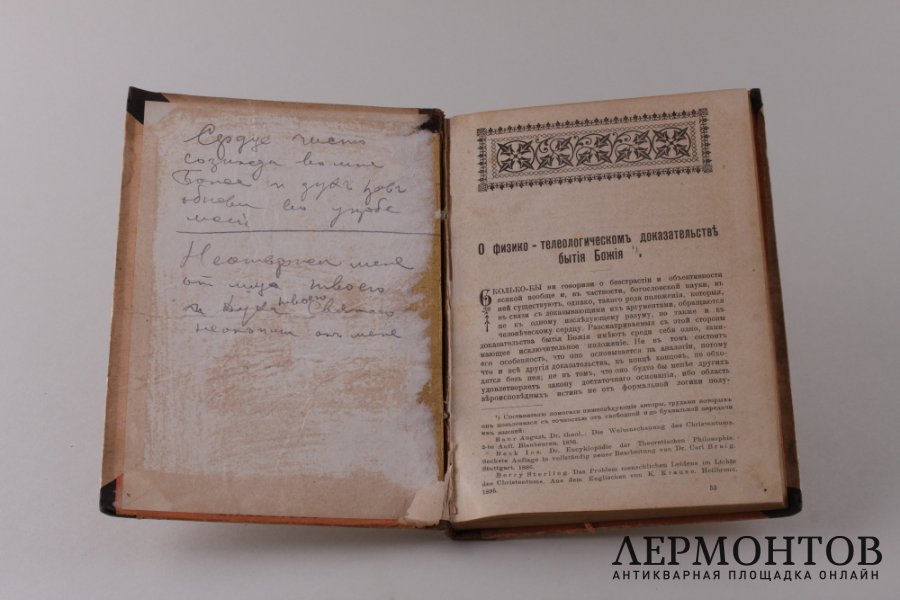 Сердце чисто
созижда во мне
Боже и духъ правъ
обнови во утробе
моей
Неотвержи мене
от лица твоего
и Духа твоего Святаго
неотыми от мене
О физико-телеологическомъ доказательствѣ
бытія Божія ¹).
СКОЛЬКО-БЫ ни говорили о безстрастіи и объективности
всякой вообще и, въ частности, богословской науки, въ
ней существуютъ, однако, такого рода положенія, которыя,
въ связи съ доказывающими ихъ аргументами, обращаются
не къ одному изслѣдующему разуму, но также и къ
человѣческому сердцу. Разсматриваемыя съ этой стороны
доказательства бытія Божія имѣютъ среди себя одно, зани-
мающее исключительное положеніе. Не въ томъ состоитъ
его особенность, что оно основывается на аналогіи, потому
что и всѣ другія доказательства, въ концѣ концовъ, не обхо-
дятся безъ нея; не въ томъ, что оно будто бы менѣе другихъ
удовлетворяетъ закону достаточнаго основанія, ибо область
вѣроисповѣдныхъ истинъ не отъ формальной логики полу-
¹) Составителю помогали нижеслѣдующіе авторы, трудами которыхъ
онъ пользовался съ точностью отъ свободной и до буквальной передачи
ихъ мыслей:
Baur August, Dr. theol.: Die Weltanschauung des Christentums.
2-te Aufl. Blaubeuren. 1896.
Beck Jos. Dr. Encyklopädie der Theoretischen Philosophie.
Sechste Auflage in vollständig neuer Bearbeitung von Dr. Carl Braig.
Stuttgart. 1886.
Berry Sterling. Das Problem menschlichen Leidens im Lichte
des Christentums. Aus dem Englischen von K. Krause. Heilbronn.
1895.
53
ЛЕРМОНТОВ
АНТИКВАРНАЯ ПЛОЩАДКА ОНЛАЙН